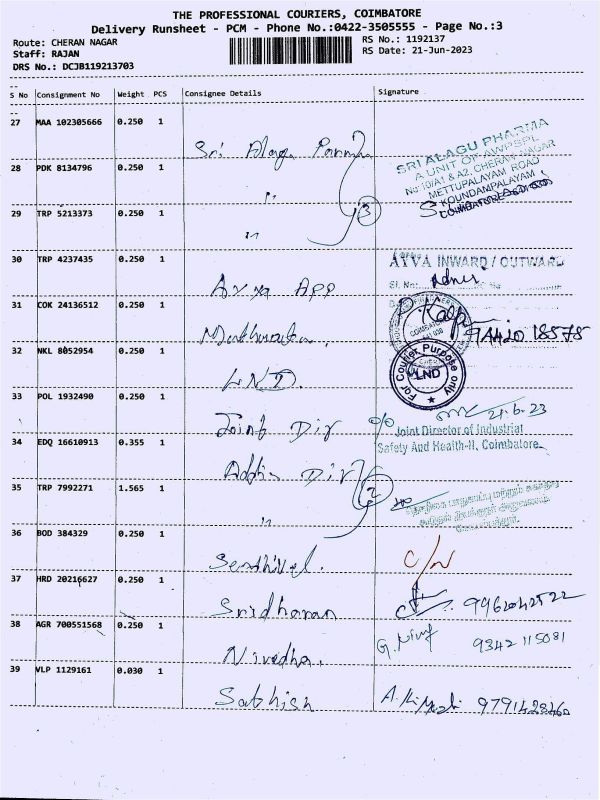 THE PROFESSIONAL COURIERS, COIMBATORE
Delivery Runsheet - PCM - Phone No.:0422-3505555 - Page No.:3
Route: CHERAN NAGAR RS No.: 1192137
Staff: RAJAN RS Date: 21-Jun-2023
DRS No.: DCJB119213703
S No Consignment No Weight PCS Consignee Details Signature
27 MAA 102305666 0.250 1
Sri Alagu
SRI ALAGU PHARMA
A UNIT OF AWPSPL
No 10/A1 & A2, CHERAN NAGAR
METTUPALAYAM ROAD
KOUNDAMPALAYAM
28 PDK 8134796 0.250 1
"
29 TRP 5213373 0.250 1
" 3
30 TRP 4237435 0.250 1
INWARD / OUTWARD
Sl. No.
31 COK 24136512 0.250 1
COIMBATORE
32 NKL 8052954 0.250 1
LND
For Courier Purpose only
LND
33 POL 1932490 0.250 1
Joint Dir
21.6.23
Joint Director of Industrial
Safety And Health-II, Coimbatore.
34 EDQ 16610913 0.355 1
Dir 2
35 TRP 7992271 1.565 1
"
36 BOD 384329 0.250 1
37 HRD 20216627 0.250 1
Sridharan
38 AGR 700551568 0.250 1
Nivedha. 9342 115081
39 VLP 1129161 0.030 1
Sathish